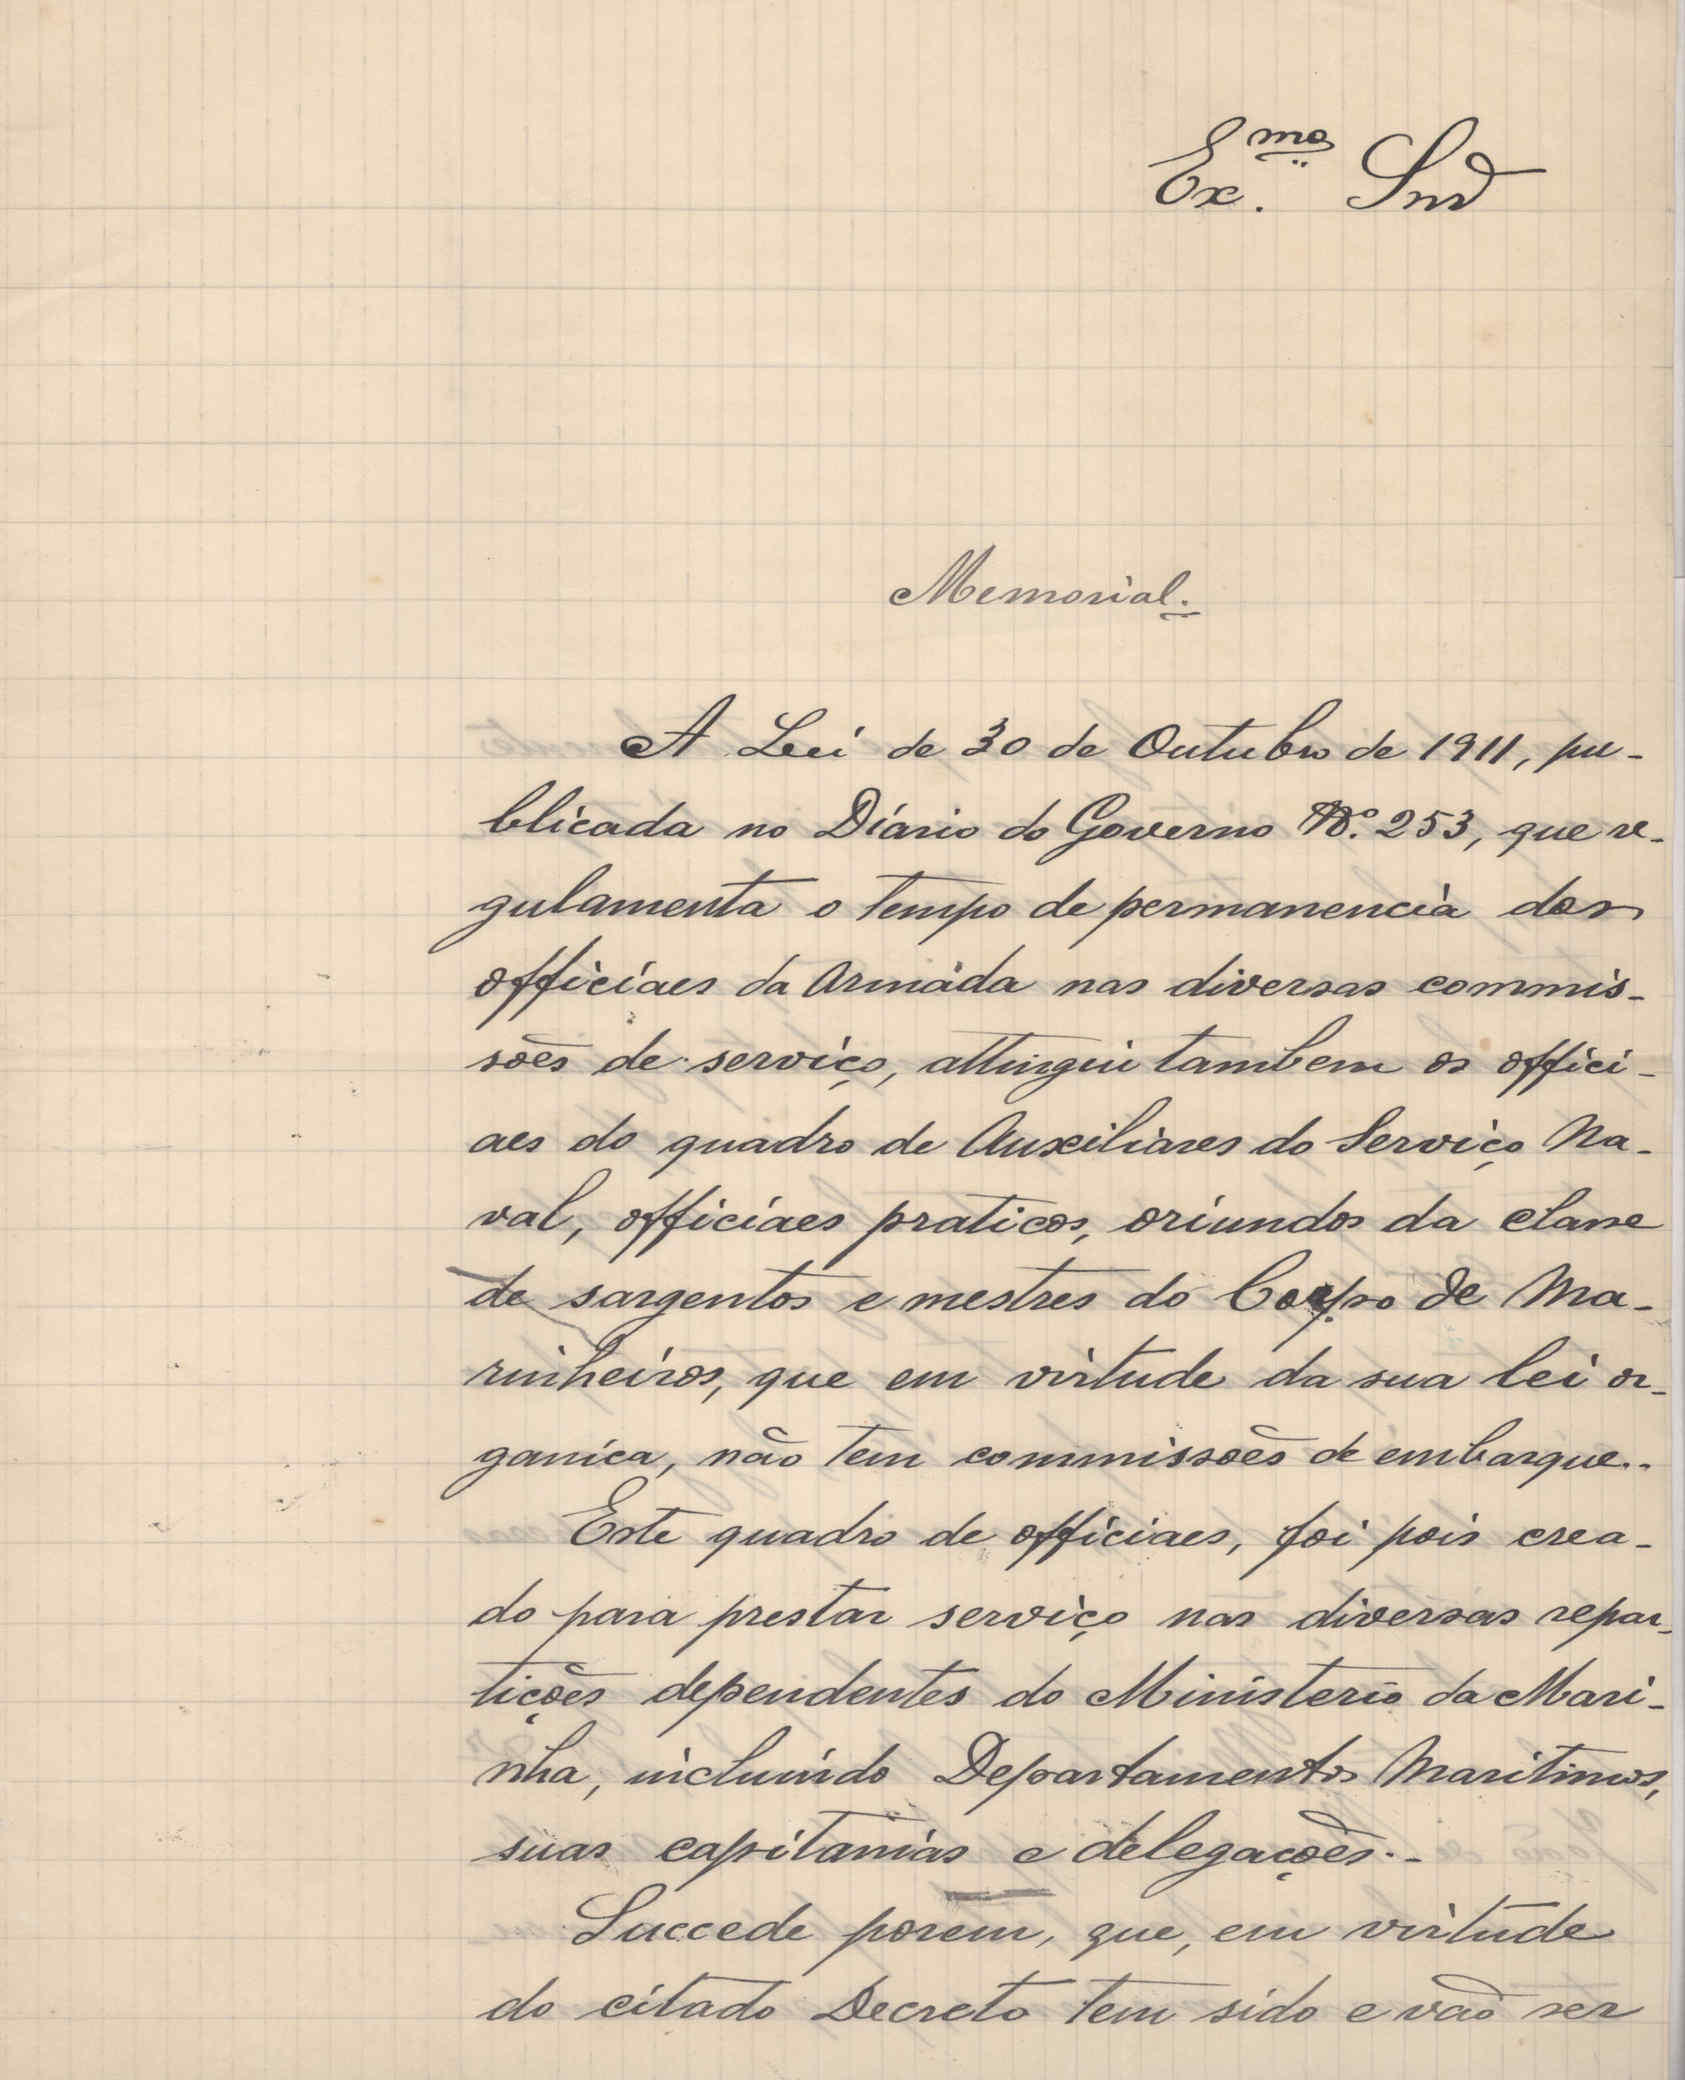 Ex.mo Snr
Memorial.
A Lei de 30 de Outubro de 1911, pu-
blicada no Diário do Governo Nº. 253, que re-
gulamenta o tempo de permanencia dos
officiaes da Armada nas diversas commis-
sões de serviço, attingiu tambem os offici-
aes do quadro de Auxiliares do Serviço Na-
val, officiaes praticos, oriundos da classe
de sargentos e mestres do Corpo de Ma-
rinheiros, que em virtude da sua lei or-
ganica, não tem commissões de embarque.-
Este quadro de officiaes, foi pois crea-
do para prestar serviço nas diversas repar-
tições dependentes do Ministerio da Mari-
nha, incluindo Departamentos Maritimos,
suas capitanias e delegações.-
Succede porem, que, em virtude
do citado Decreto tem sido e vão ser